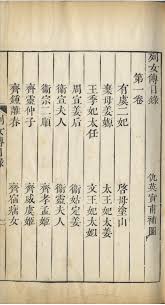 列女傳目錄
第一卷　仇英實甫補圖
有虞二妃　啓母塗山
棄母姜嫄　太王妃太姜
王季妃太任　文王妃太姒
周宣姜后　衛姑定姜
衛宣夫人　衛靈夫人
衛宗二順　齊孝孟姬
齊靈仲子　齊威虞姬
齊鍾離春　齊宿瘤女